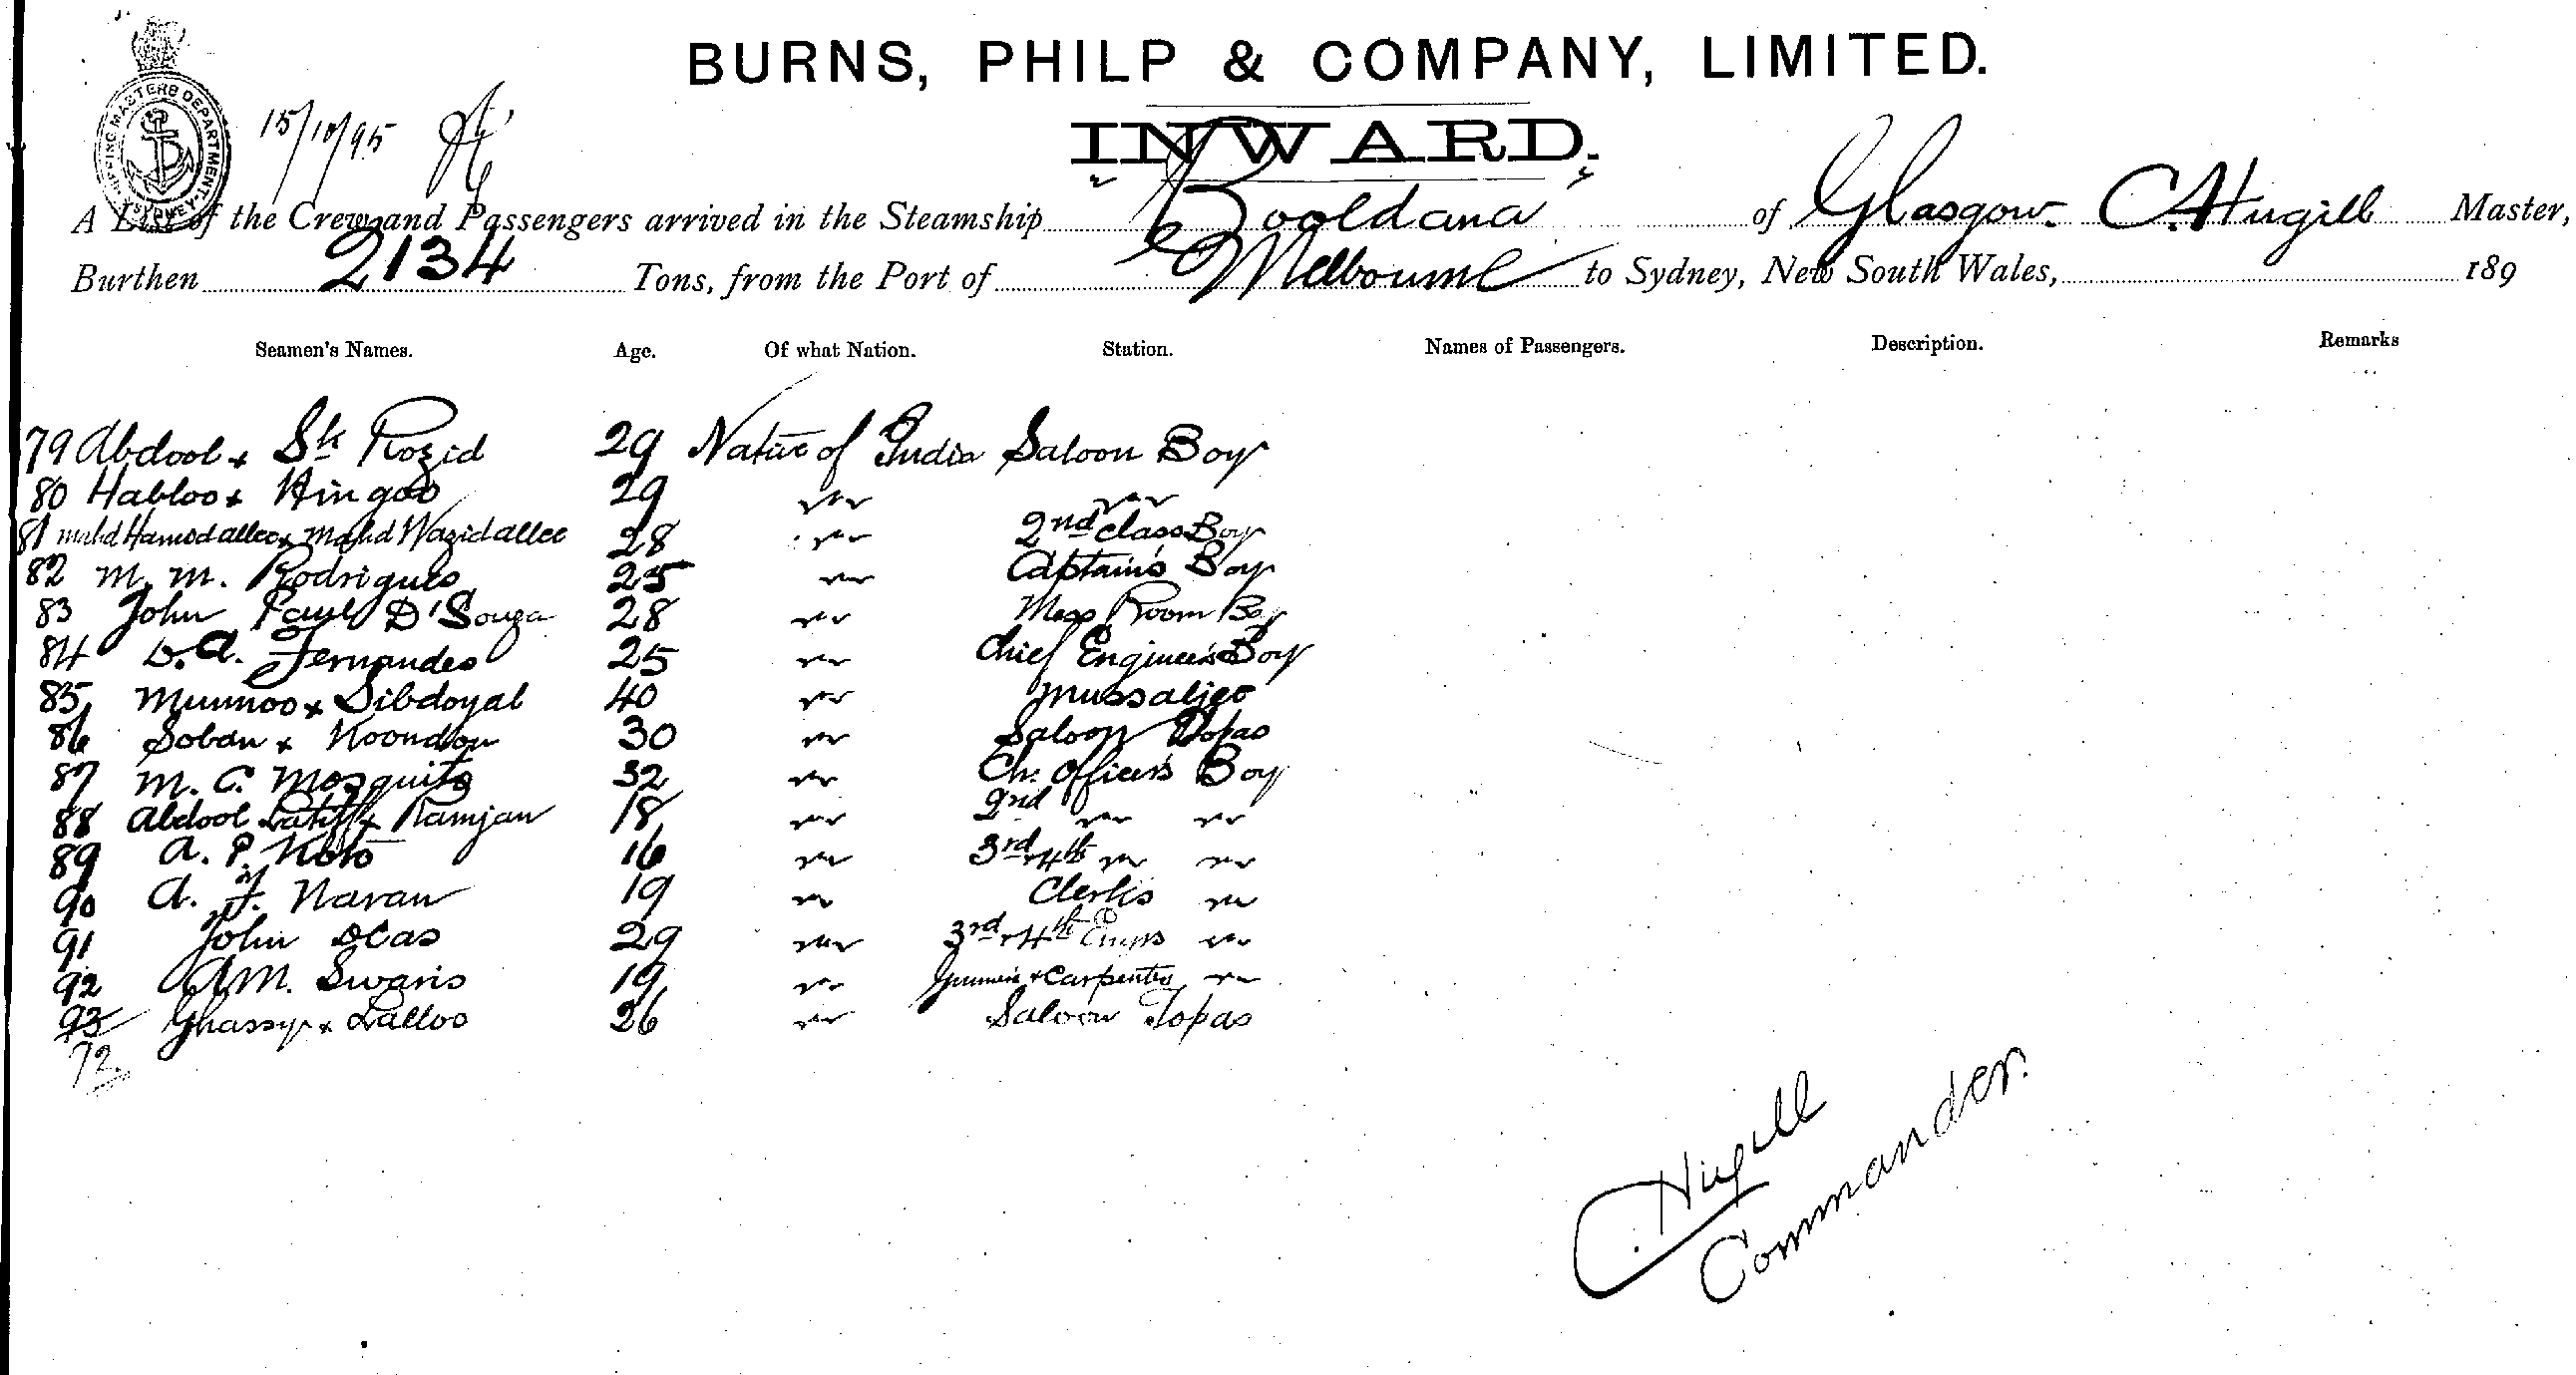 BURNS, PHILP & COMPANY, LIMITED.
INWARD.
SHIPPING MASTERS DEPARTMENT SYDNEY
15/10/95
A List of the Crew and Passengers arrived in the Steamship Booldana of Glasgow. C. Hugill Master,
Burthen 2134 Tons, from the Port of Melbourne to Sydney, New South Wales, 189
Seamen's Names. Age. Of what Nation. Station. Names of Passengers. Description. Remarks
79 Abdool x Sk Rozid 29 Native of India Saloon Boy
80 Habloo x Hingoo 29 " "
81 Mahd Hamedallee x Mahd Wazidallee 28 " 2nd class Boy
82 M. M. Rodrigues 25 " Captain's Boy
83 John Paul D'Souza 28 " Mess Room Boy
84 D. A. Fernandes 25 " Chief Engineer's Boy
85 Munnoo x Sibdoyal 40 " Mussaljee
86 Soban x Koondon 30 " Saloon Topas
87 M. C. Mosquito 32 " Ch. Officer's Boy
88 Abdool Latiff x Ramjan 18 " 2nd " "
89 A. P. Koto 16 " 3rd & 4th " "
90 A. F. Naran 19 " Clerks "
91 John Dias 29 " 3rd & 4th Engrs "
92 A M. Swaris 19 " Gunner & Carpenter "
93 Ghassy x Lalloo 26 " Saloon Topas
72
C. Hugill
Commander.